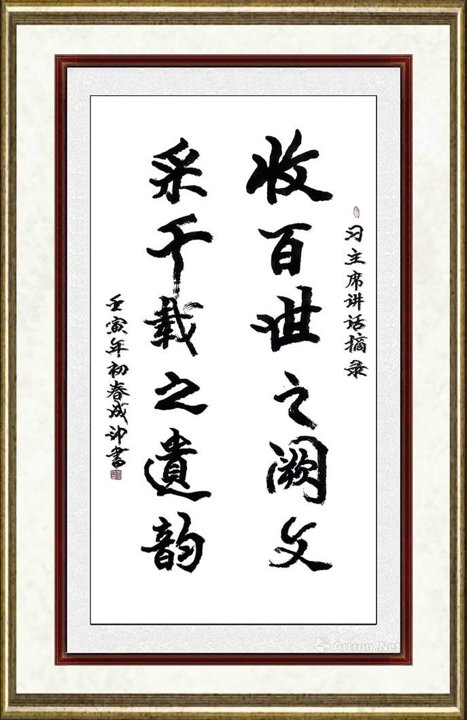 习主席讲话摘录
收百世之阙文
采千载之遗韵
壬寅年初春成沖書
Artron.Net